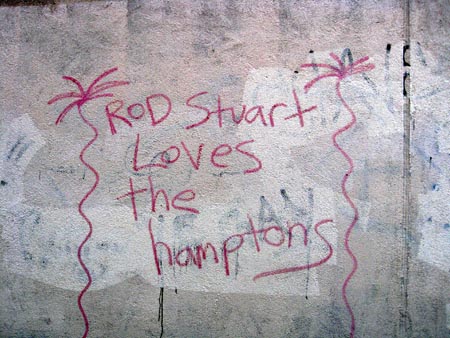 RoD Stuart
Loves
the
hamptons